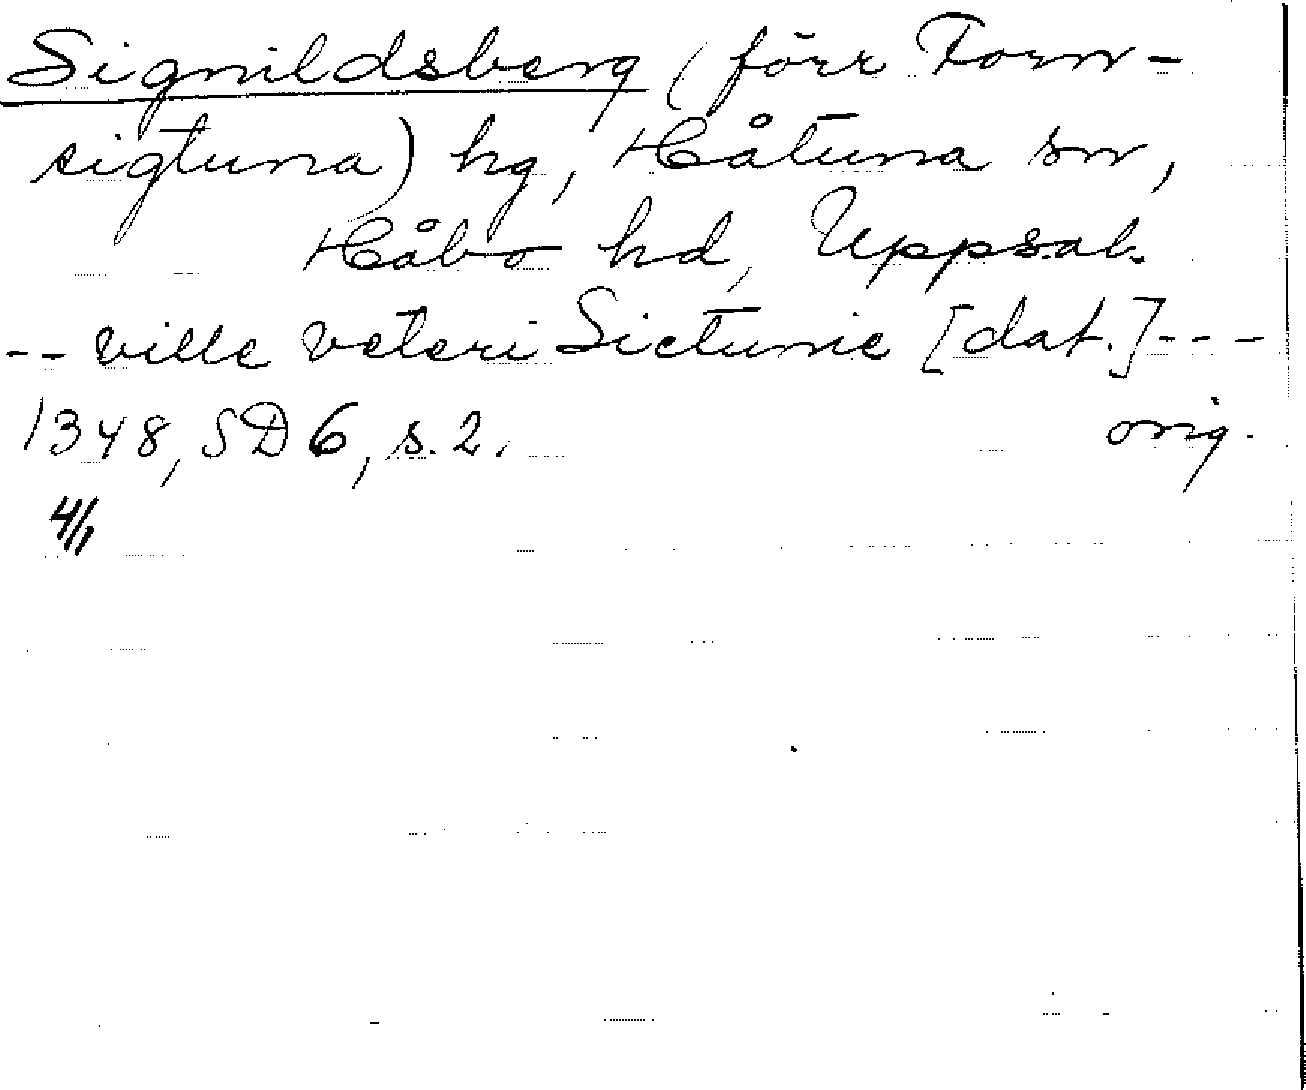 Signildsberg (förr Forn-
sigtuna) hg, Håtuna sn,
Håbo hd, Uppsal.
-- ville veteri Sictunie [dat.]---
1348, SD 6, s. 2. orig.
4/1